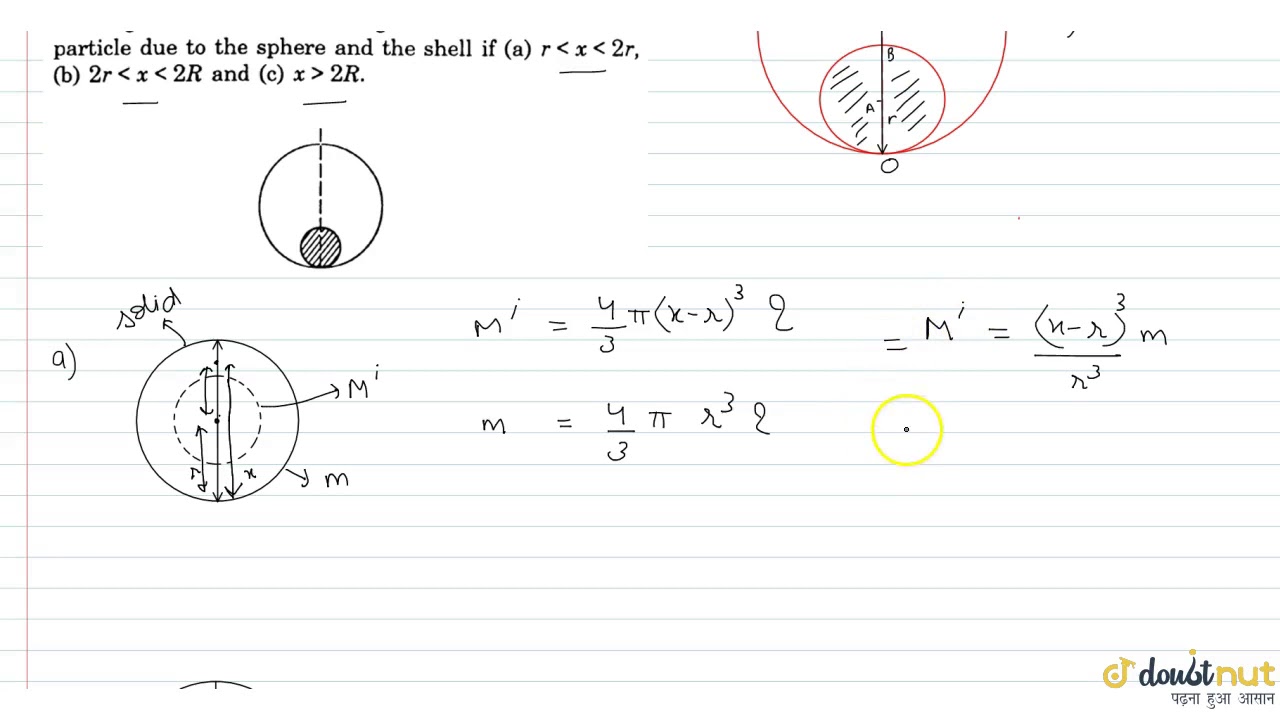 particle due to the sphere and the shell if (a) r < x < 2r,
(b) 2r < x < 2R and (c) x > 2R.
B
A
r
O
solid
a)
M'
r
x
m
M' = 4/3 π (x-r)^3 ρ
= M' = (x-r)^3 m / r^3
m = 4/3 π r^3 ρ
doubtnut
पढ़ना हुआ आसान